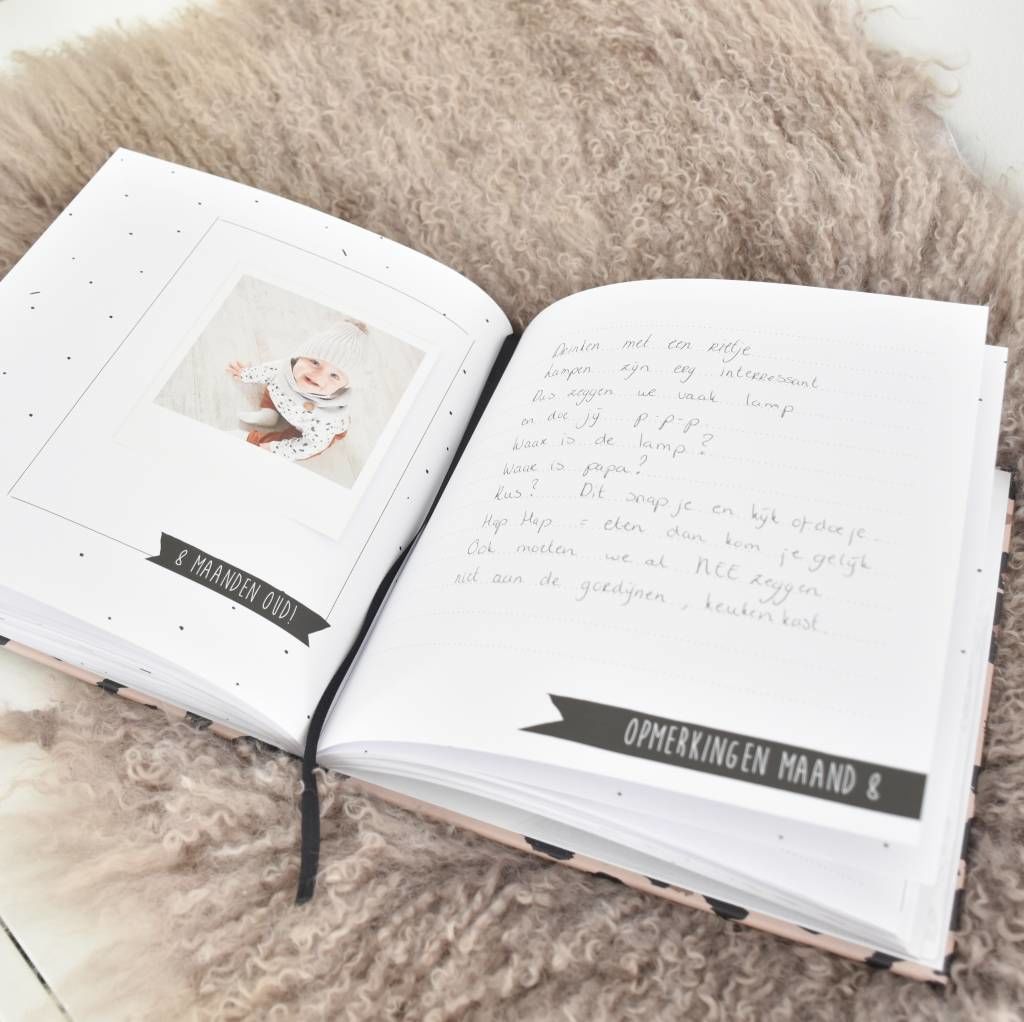 8 MAANDEN OUD!
Drinken met een rietje
Lampen zijn erg interressant
Dus zeggen we vaak lamp
en doe jij p-p-p.
Waar is de lamp?
Waar is papa?
Kus? Dit snap je en kijk of doe je
Hap Hap = eten dan kom je gelijk
Ook moeten we al NEE zeggen
niet aan de gordijnen, keukenkast
OPMERKINGEN MAAND 8